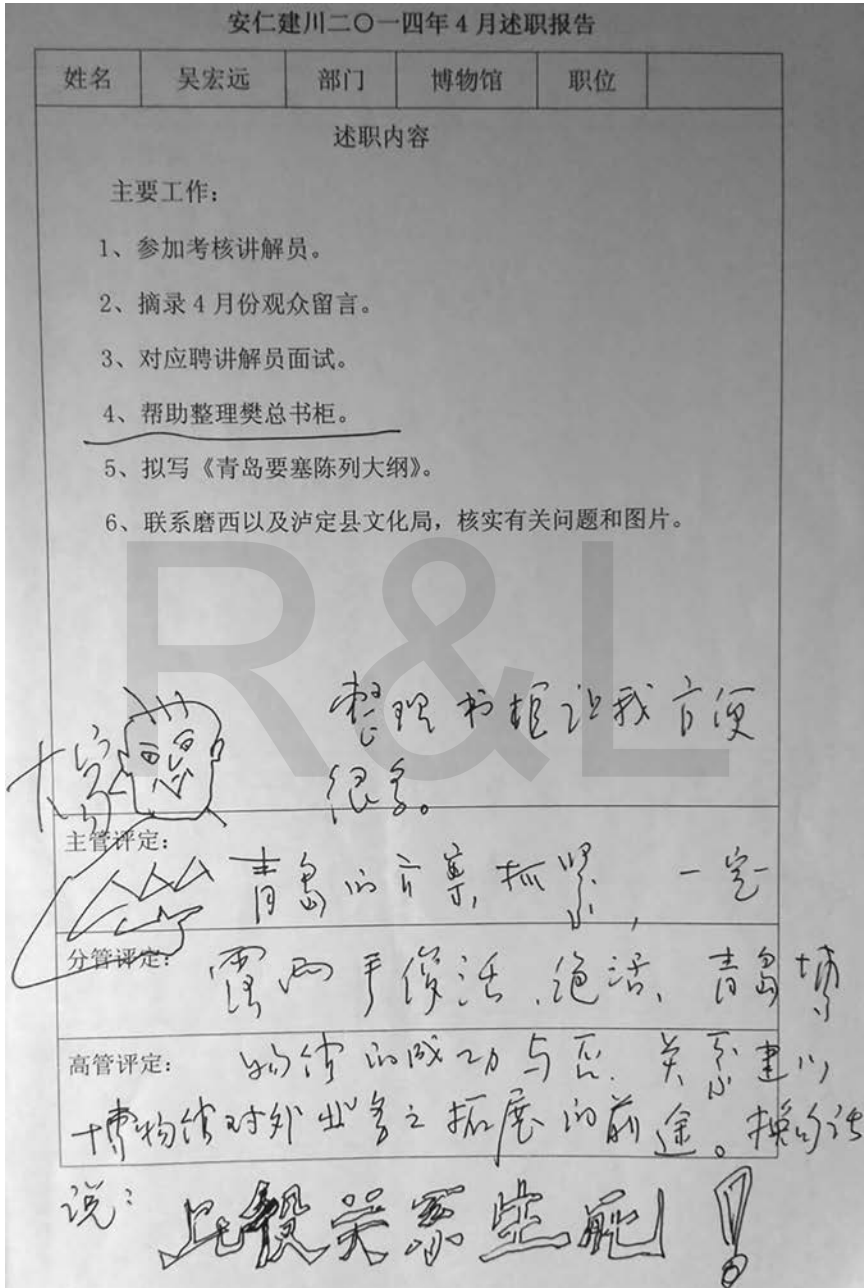 安仁建川二〇一四年 4 月述职报告
姓名 吴宏远 部门 博物馆 职位
述职内容
主要工作：
1、参加考核讲解员。
2、摘录 4 月份观众留言。
3、对应聘讲解员面试。
4、帮助整理樊总书柜。
5、拟写《青岛要塞陈列大纲》。
6、联系磨西以及泸定县文化局，核实有关问题和图片。
R&L
整理书柜让我方便
很多。
主管评定：
青岛的方案，抓紧，一定
分管评定：
露两手俊活、绝活、青岛博
高管评定：
物馆的成功与否，关系建川
博物馆对外业务之拓展的前途。换句话
说：
关系生死！